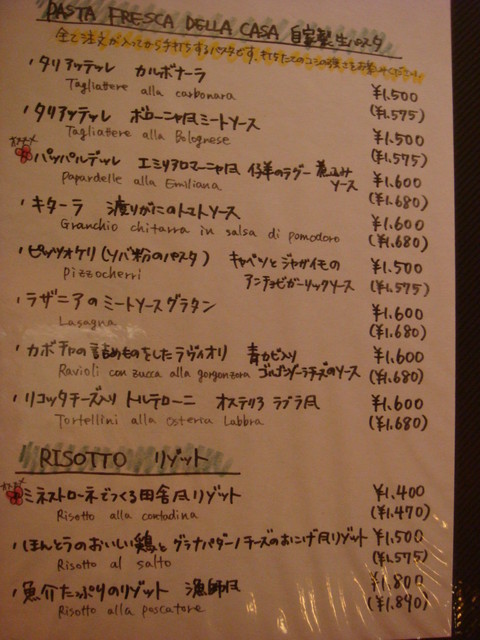 PASTA FRESCA DELLA CASA 自家製生パスタ
全て注文が入ってから手打ちするパスタです。
・タリアッテッレ カルボナーラ ¥1.500
Tagliattere alla carbonara (¥1.575)
・タリアッテッレ ボローニャ風ミートソース ¥1.500
Tagliattere alla Bolognese (¥1.575)
オススメ
パッパルデッレ エミリアロマーニャ風 仔羊のラグー 煮込みソース ¥1.600
Papardelle alla Emiliana (¥1.680)
・キターラ 渡りがにのトマトソース ¥1.600
Granchio chitarra in salsa di pomodoro (¥1.680)
・ピッツォケリ(ソバ粉のパスタ) キャベツとジャガイモの ¥1.500
Pizzocherri アンチョビガーリックソース (¥1.575)
・ラザニアのミートソースグラタン ¥1.600
Lasagna (¥1.680)
・カボチャの詰めものをしたラヴィオリ 青カビ入り ¥1.600
Ravioli con zucca alla gorgonzora ゴルゴンゾーラチーズのソース (¥1.680)
・リコッタチーズ入り トルテローニ オステリア ラブラ風 ¥1.600
Tortellini alla osterra Labbra (¥1.680)
RISOTTO リゾット
オススメ
ミネストローネでつくる田舎風リゾット ¥1.400
Risotto alla contadina (¥1.470)
・ほんとうのおいしい鶏とグラナパダーノチーズのおこげ風リゾット ¥1.500
Risotto al salto (¥1.575)
・魚介たっぷりのリゾット 漁師風 ¥1.800
Risotto alla poscatore (¥1.890)